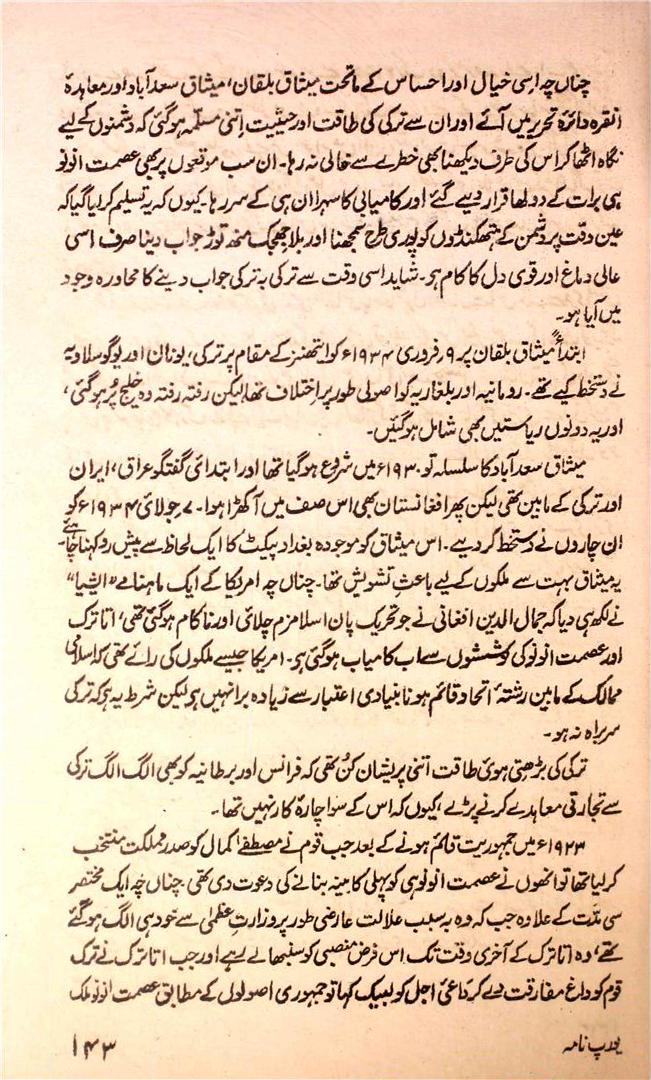 چناں چہ اسی خیال اور احساس کے ماتحت میثاق بلقان، میثاق سعد آباد اور معاہدۂ
انقرہ دائرۂ تحریر میں آئے اور ان سے ترکی کی طاقت اور حیثیت اتنی مسلّمہ ہو گئی کہ دشمنوں کے لیے
نگاہ اٹھا کر اس کی طرف دیکھنا بھی خطرے سے خالی نہ رہا۔ ان سب موقعوں پر بھی عصمت انونو
ہی برات کے دولھا قرار دیے گئے اور کامیابی کا سہرا ان ہی کے سر رہا۔ کیوں کہ یہ تسلیم کر لیا گیا کہ
عین وقت پر دشمن کے ہتھکنڈوں کو پوری طرح سمجھنا اور بلا جھجک منھ توڑ جواب دینا صرف اسی
عالی دماغ اور قوی دل کا کام ہی۔ شاید اسی وقت سے ترکی بہ ترکی جواب دینے کا محاورہ وجود
میں آیا ہو۔
ابتداءً میثاق بلقان پر ۹ر فروری ۱۹۳۴ء کو ایتھنز کے مقام پر ترکی، یونان اور یوگوسلاویہ
نے دستخط کیے تھے۔ رومانیہ اور بلغاریہ کو اصولی طور پر اختلاف تھا لیکن رفتہ رفتہ وہ خلیج پُر ہو گئی،
اور یہ دونوں ریاستیں بھی شامل ہو گئیں۔
میثاق سعد آباد کا سلسلہ تو ۱۹۳۰ء میں شروع ہو گیا تھا اور ابتدائی گفتگو عراق، ایران
اور ترکی کے مابین تھی لیکن پھر افغانستان بھی اس صف میں آ کھڑا ہوا۔ ۷ر جولائی ۱۹۳۴ء کو
ان چاروں نے دستخط کر دیے۔ اس میثاق کو موجودہ بغداد پیکٹ کا ایک لحاظ سے پیش رو کہنا چاہیے۔
یہ میثاق بہت سے ملکوں کے لیے باعثِ تشویش تھا۔ چناں چہ امریکا کے ایک ماہنامے "ایشیا"
نے لکھ ہی دیا کہ جمال الدین افغانی نے جو تحریک پان اسلامزم چلائی اور ناکام ہو گئی تھی، اتاترک
اور عصمت انونو کی کوششوں سے اب کامیاب ہو گئی ہی۔ امریکا جیسے ملکوں کی رائے تھی کہ اسلامی
ممالک کے مابین رشتۂ اتحاد قائم ہونا بنیادی اعتبار سے زیادہ برا نہیں ہی لیکن شرط یہ ہی کہ ترکی
سربراہ نہ ہو۔
ترکی کی بڑھتی ہوئی طاقت اتنی پریشان کُن تھی کہ فرانس اور برطانیہ کو بھی الگ الگ ترکی
سے تجارتی معاہدے کرنے پڑے، کیوں کہ اس کے سوا چارۂ کار نہیں تھا۔
۱۹۲۳ء میں جمہوریت قائم ہونے کے بعد جب قوم نے مصطفےٰ کمال کو صدر مملکت منتخب
کر لیا تھا تو انھوں نے عصمت انونو ہی کو پہلی کابینہ بنانے کی دعوت دی تھی۔ چناں چہ ایک مختصر
سی مدّت کے علاوہ جب کہ وہ بہ سبب علالت عارضی طور پر وزارتِ عظمیٰ سے خود ہی الگ ہو گئے
تھے، وہ اتاترک کے آخری وقت تک اس فرض منصبی کو سنبھالے رہے اور جب اتاترک نے ترک
قوم کو داغ مفارقت دے کر داعیِ اجل کو لبیک کہا تو جمہوری اصولوں کے مطابق عصمت انونو ملک
یورپ نامہ
۱۴۳